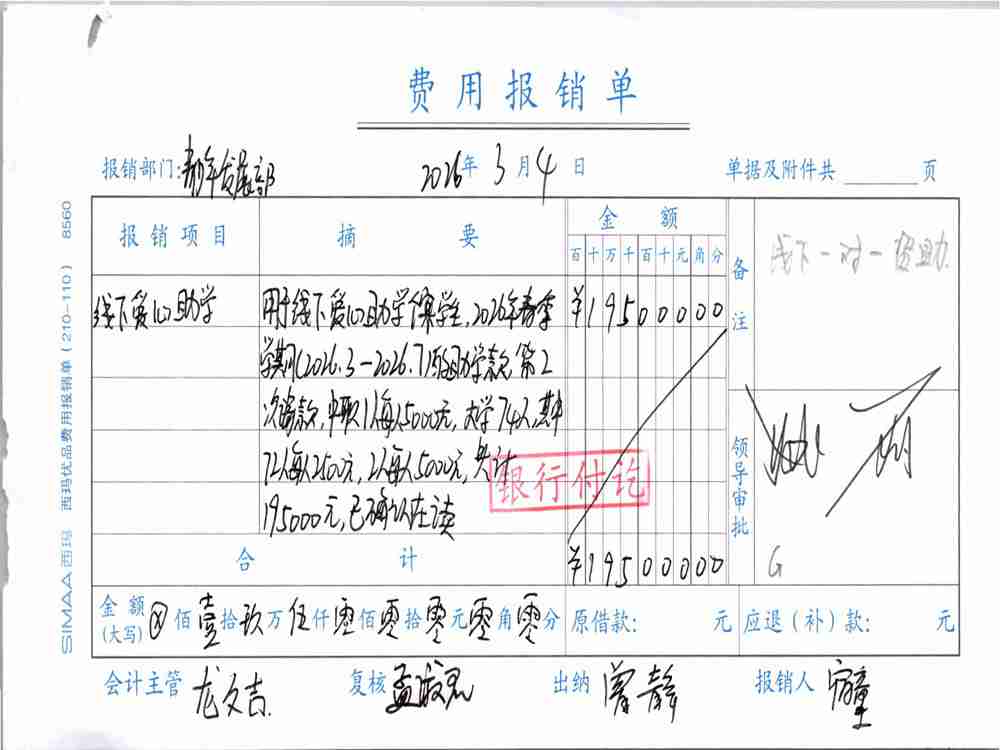 费用报销单
报销部门:青年发展部 2026年3月4日 单据及附件共 页
报销项目 摘要 金额
百十万千百十元角分
备注
线下一对一资助
线下爱心助学 用于线下爱心助学项目学生,2026年春季 ¥19500000
学期(2026.3-2026.7)的助学款第2
次拨款,中职1人每人5000元,大学74人,其中
72人每人2500元,2人每人5000元,共计
195000元,已确认在读
银行付讫
领导审批
G
合计 ¥19500000
金额(大写)ⓧ佰壹拾玖万伍仟零佰零拾零元零角零分 原借款: 元 应退(补)款: 元
会计主管 龙文吉 复核 孟淑思 出纳 曾静 报销人
SIMAA西玛 西玛优品费用报销单(210-110) 8560